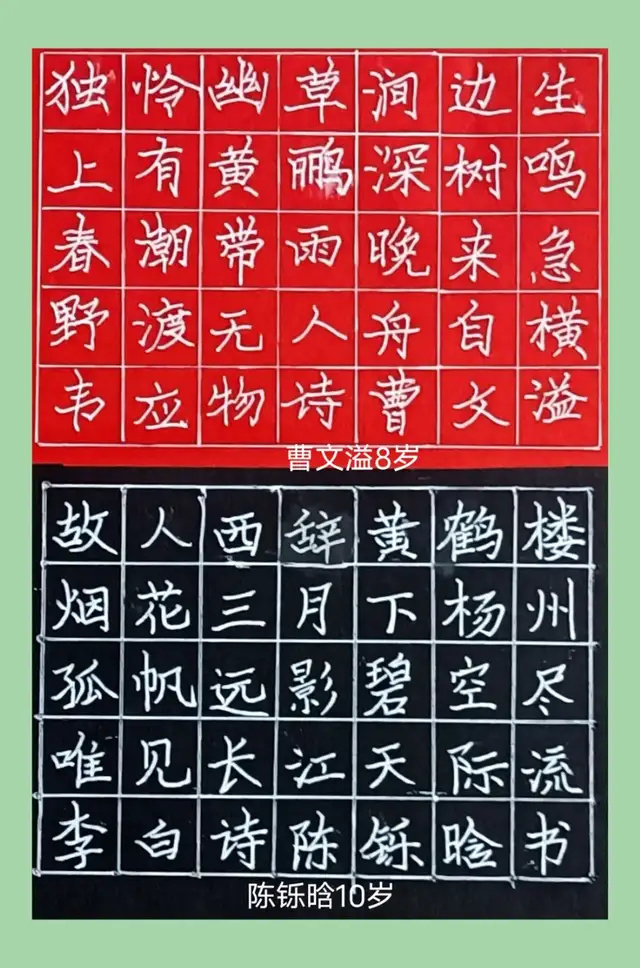 独怜幽草涧边生
上有黄鹂深树鸣
春潮带雨晚来急
野渡无人舟自横
韦应物诗曹文溢
曹文溢8岁
故人西辞黄鹤楼
烟花三月下杨州
孤帆远影碧空尽
唯见长江天际流
李白诗陈铄晗书
陈铄晗10岁